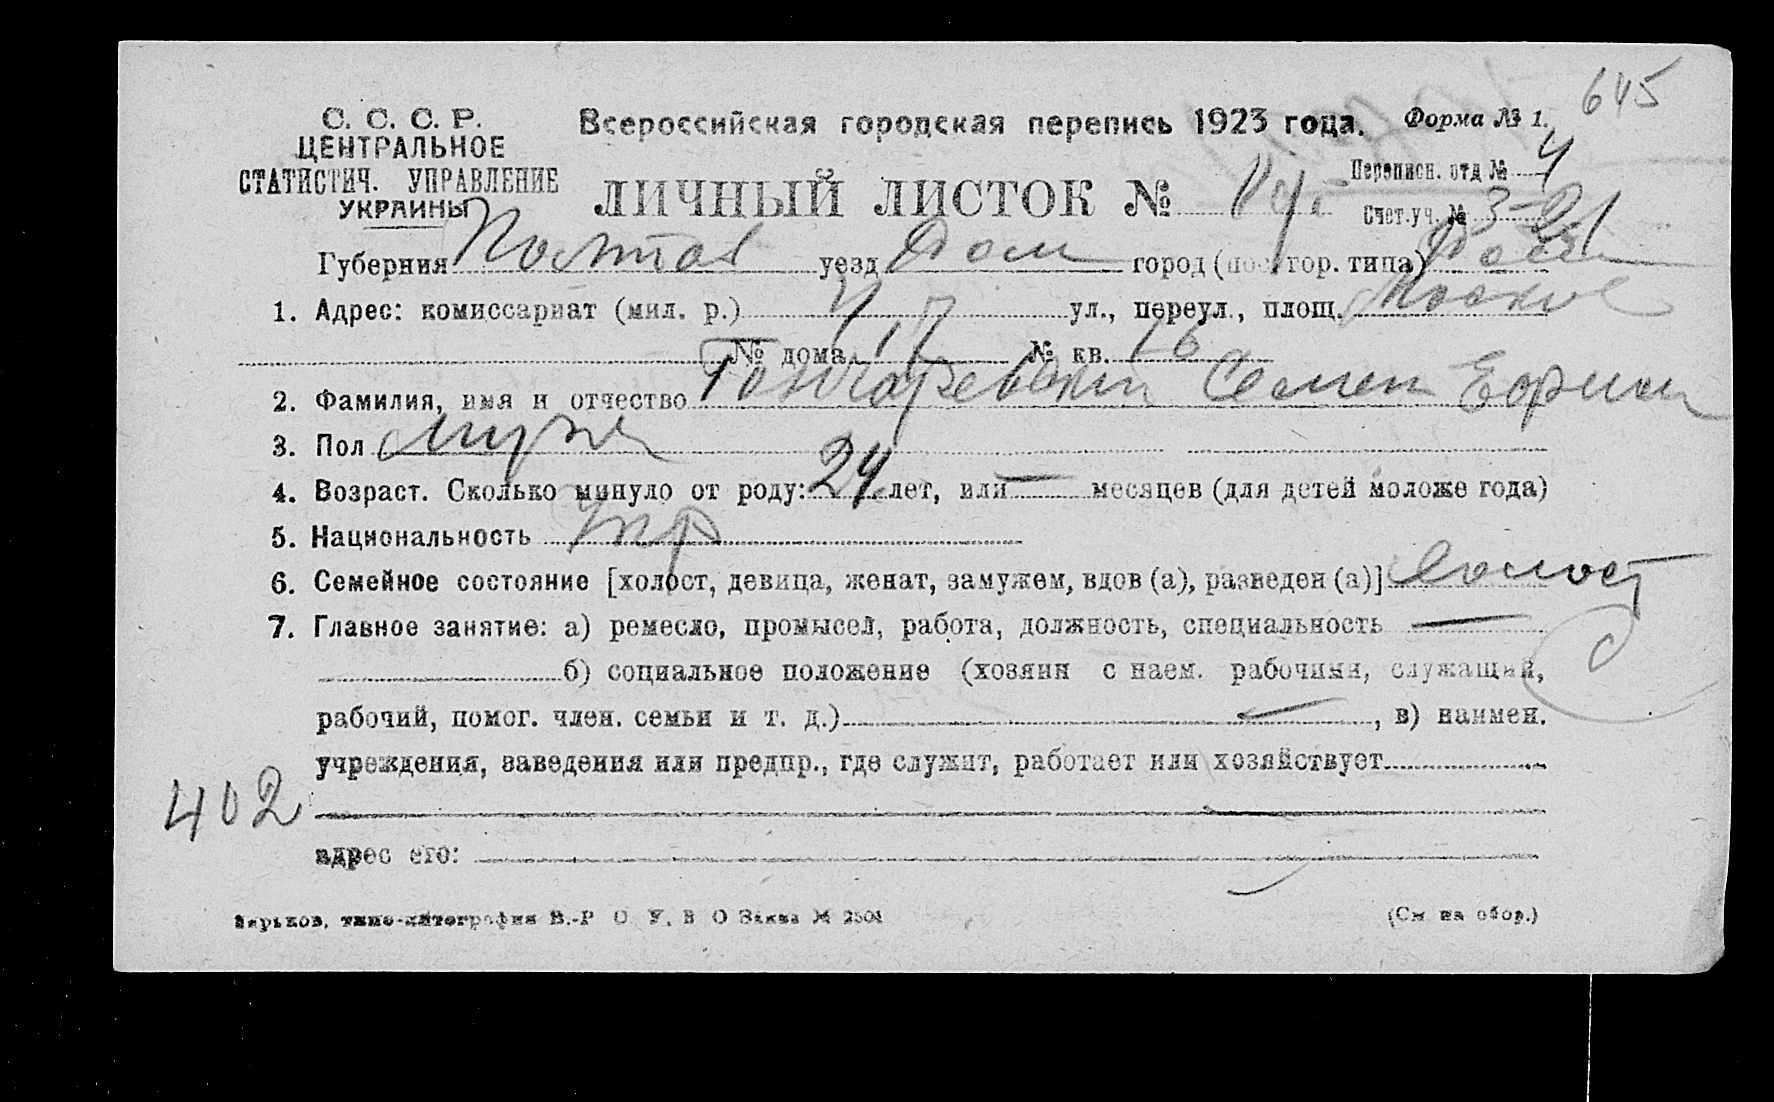 645
С. С. С. Р.
ЦЕНТРАЛЬНОЕ
СТАТИСТИЧ. УПРАВЛЕНИЕ
УКРАИНЫ
Всероссийская городская перепись 1923 года. Форма № 1.
ЛИЧНЫЙ ЛИСТОК №
Переписн. отд № 4
Счет. уч. № 3-21
Губерния Полтав уезд Пол город (пос. гор. типа) Пол
1. Адрес: комиссариат (мил. р.) ул., переул., площ. Москов
№ дома 17 № кв. 16
2. Фамилия, имя и отчество Гончаревский Семен Ефрим
3. Пол муж
4. Возраст. Сколько минуло от роду: 24 лет, или — месяцев (для детей моложе года)
5. Национальность Укр
6. Семейное состояние [холост, девица, женат, замужем, вдов (а), разведен (а)] холост
7. Главное занятие: а) ремесло, промысел, работа, должность, специальность —
б) социальное положение (хозяин с наем. рабочими, служащий,
рабочий, помог. член. семьи и т. д.) — , в) наимен.
учреждения, заведения или предпр., где служит, работает или хозяйствует
402
адрес его:
Харьков, типо-литография В.-Р О. У. В О Заказ № 2504
(См на обор.)